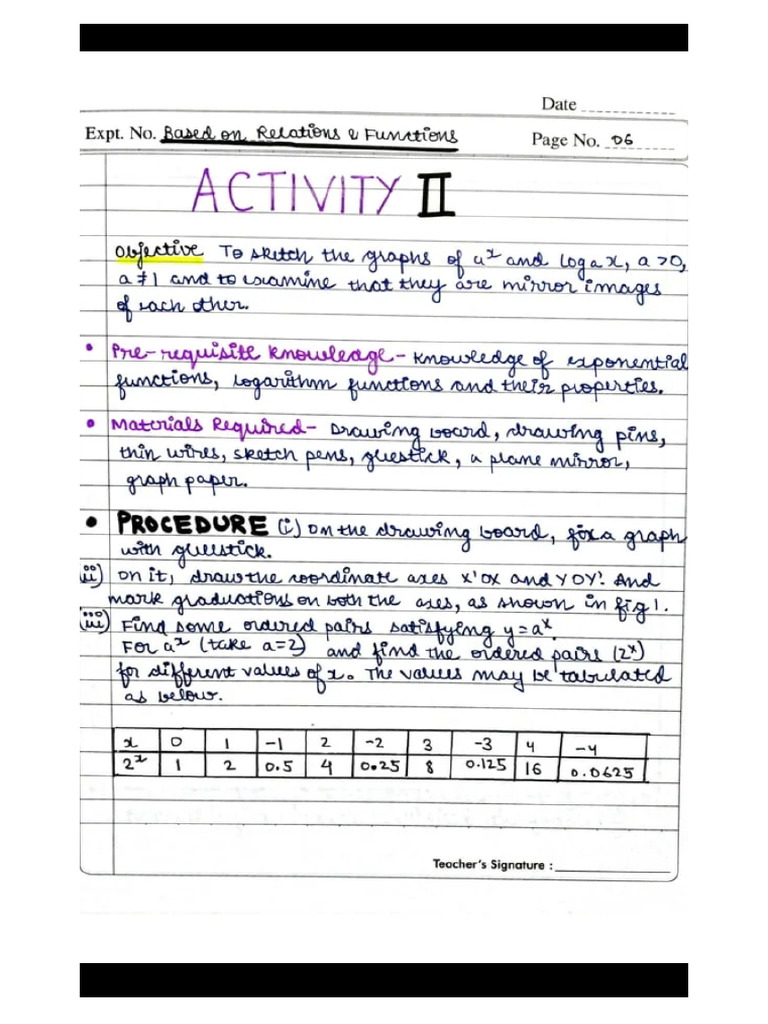 Date
Expt. No. Based on Relations & Functions
Page No. 06
ACTIVITY II
Objective To sketch the graphs of aˣ and log a x, a > 0,
a ≠ 1 and to examine that they are mirror images
of each other.
• Pre-requisite knowledge - Knowledge of exponential
functions, logarithm functions and their properties.
• Materials Required - Drawing board, drawing pins,
thin wires, sketch pens, gluestick, a plane mirror,
graph paper.
• PROCEDURE (i) On the drawing board, fix a graph
with gluestick.
(ii) On it, draw the coordinate axes X'OX and YOY'. And
mark graduations on both the axes, as shown in fig 1.
(iii) Find some ordered pairs satisfying y = aˣ.
For aˣ (take a=2) and find the ordered pairs (2ˣ)
for different values of x. The values may be tabulated
as below.
x 0 1 -1 2 -2 3 -3 4 -4
2ˣ 1 2 0.5 4 0.25 8 0.125 16 0.0625
Teacher's Signature :